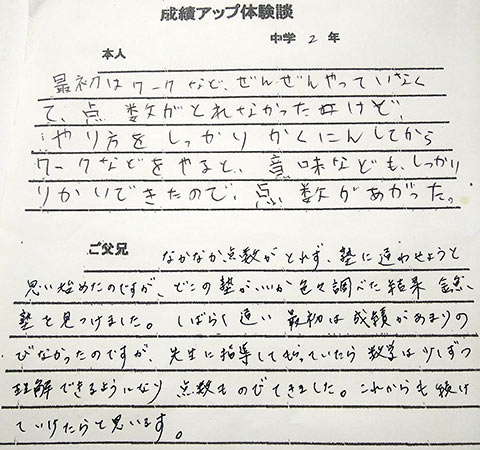 成績アップ体験談
中学2年
本人
最初はワークなど、ぜんぜんやっていなく
て、点数がとれなかったけど、
やり方をしっかりかくにんしてから
ワークなどをやると、意味なども、しっかり
りかいできたので、点数があがった。
ご父兄
なかなか点数がとれず、塾に通わせようと
思い始めたのですが、どこの塾がいいか色々調べた結果
塾を見つけました。しばらく通い最初は成績があまりの
びなかったのですが、先生に指導してもらっていたら数学は少しずつ
理解できるようになり点数ものびてきました。これからも続け
ていけたらと思います。